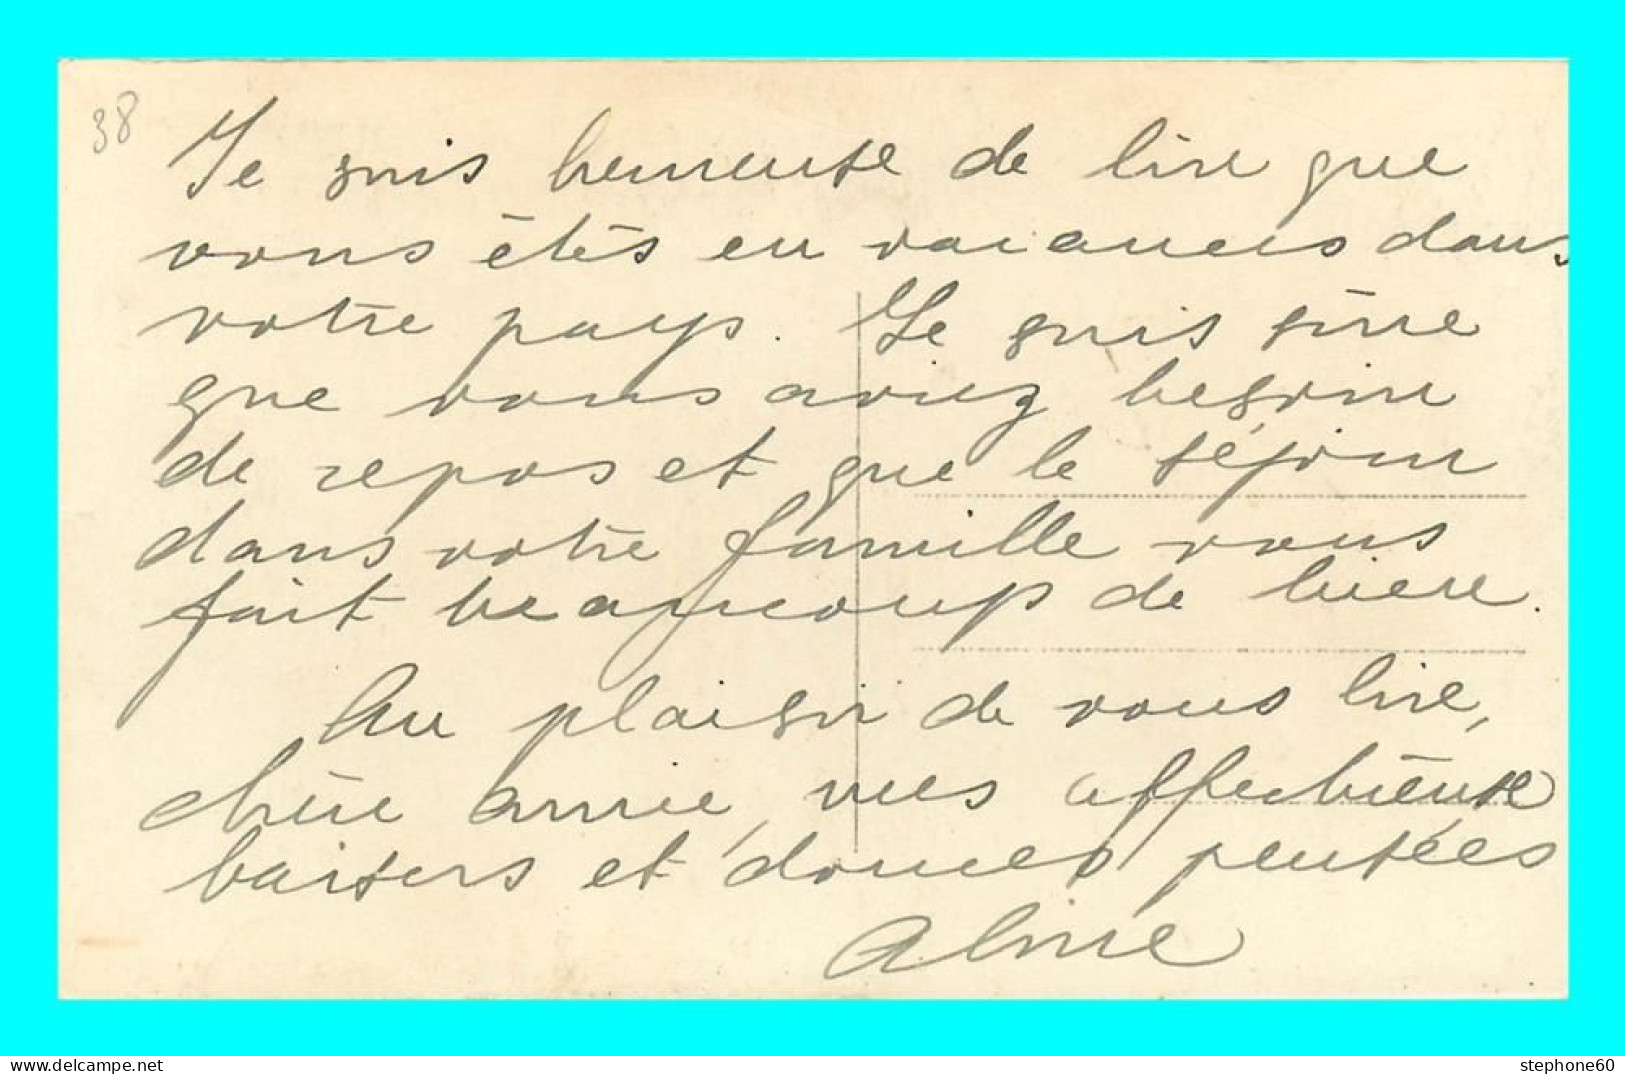 38
Je suis heureuse de lire que
vous êtes en vacances dans
votre pays. Je suis sûre
que vous aviez besoin
de repos et que le séjour
dans votre famille vous
fait beaucoup de biere.
Au plaisir de vous lire,
chère amie, mes affectueuse
baisers et douces pensées
Aline
delcampe.net
stephone60